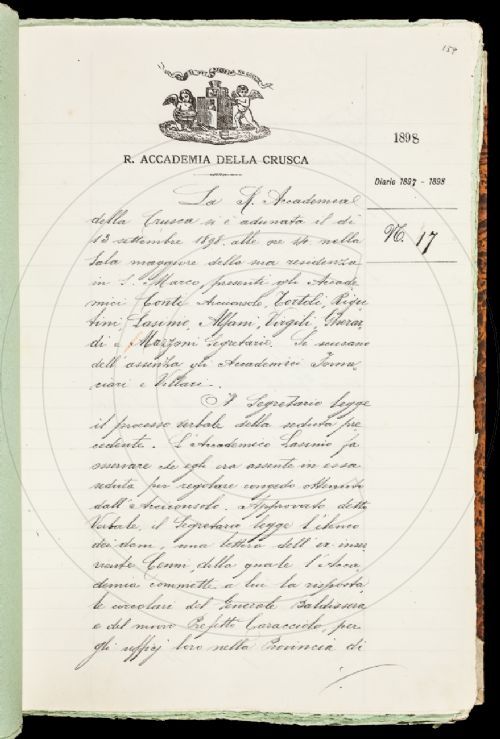 159
1898
R. ACCADEMIA DELLA CRUSCA
Diario 1897 - 1898
N. 17
La R. Accademia
della Crusca si è adunata il dì
13 settembre 1898 alle ore 14 nella
Sala maggiore della sua residenza
in S. Marco, presenti gli Accade
mici Conti Arciconsolo, Tortoli, Rigu
tini, Lasinio, Alfani, Virgili, Gherar
di e Mazzoni segretario. Si scusano
dell'assenza gli Accademici Torna
ciari e Villari.
Il Segretario legge
il processo verbale della seduta pre
cedente. L'Accademico Lasinio fa
osservare che egli era assente in essa
seduta per regolare congedo ottenuto
dall'Arciconsolo. Approvato detto
Verbale, il Segretario legge l'elenco
dei doni, una lettera dell'ex inser
viente Cenni, della quale l'Acca
demia commette a lui la risposta,
le circolari del Generale Baldissera
e del nuovo Prefetto Caracciolo, per
gli uffizj loro nella Provincia di